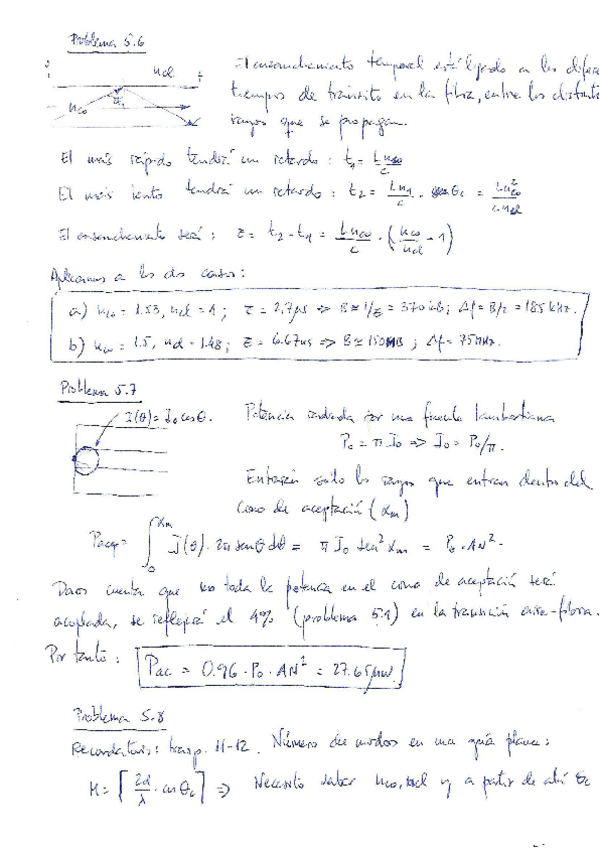 Problema 5.6
El ensanchamiento temporal está ligado a los difere
tiempos de tránsito en la fibra, entre los distinto
rayos que se propagan.
ncl
nco
El más rápido tendrá un retardo: t1 = L nco / c
El más lento tendrá un retardo: t2 = L n1 / c · θc = L nco² / c ncl
El ensanchamiento será: τ = t2 - t1 = L nco / c · (nco / ncl - 1)
Aplicamos a los dos casos:
a) nco = 1.53, ncl = 1; τ = 2.7μs => B ≃ 1/τ = 370 kB; Δf = B/2 = 185 kHz.
b) nco = 1.5, ncl = 1.48; τ = 6.67ns => B ≃ 150MB; Δf = 75MHz.
Problema 5.7
J(θ) = J0 cosθ.
Potencia radiada por una fuente lambertiana
P0 = π J0 => J0 = P0/π.
Entrarán sólo los rayos que entran dentro del
cono de aceptación (αm)
Pacep = ∫0^αm J(θ) · 2π senθ dθ = π J0 sen² αm = P0 · AN².
Daos cuenta que no toda la potencia en el cono de aceptación será
acoplada, se reflejará el 4% (problema 5.1) en la transición aire-fibra.
Por tanto: Pac = 0.96 · P0 · AN² = 27.65μW.
Problema 5.8
Recordatorio: transp. 11-12. Número de modos en una guía plana:
M = [2d/λ · cos θc] => Necesito saber nco, ncl y a partir de ahí θc